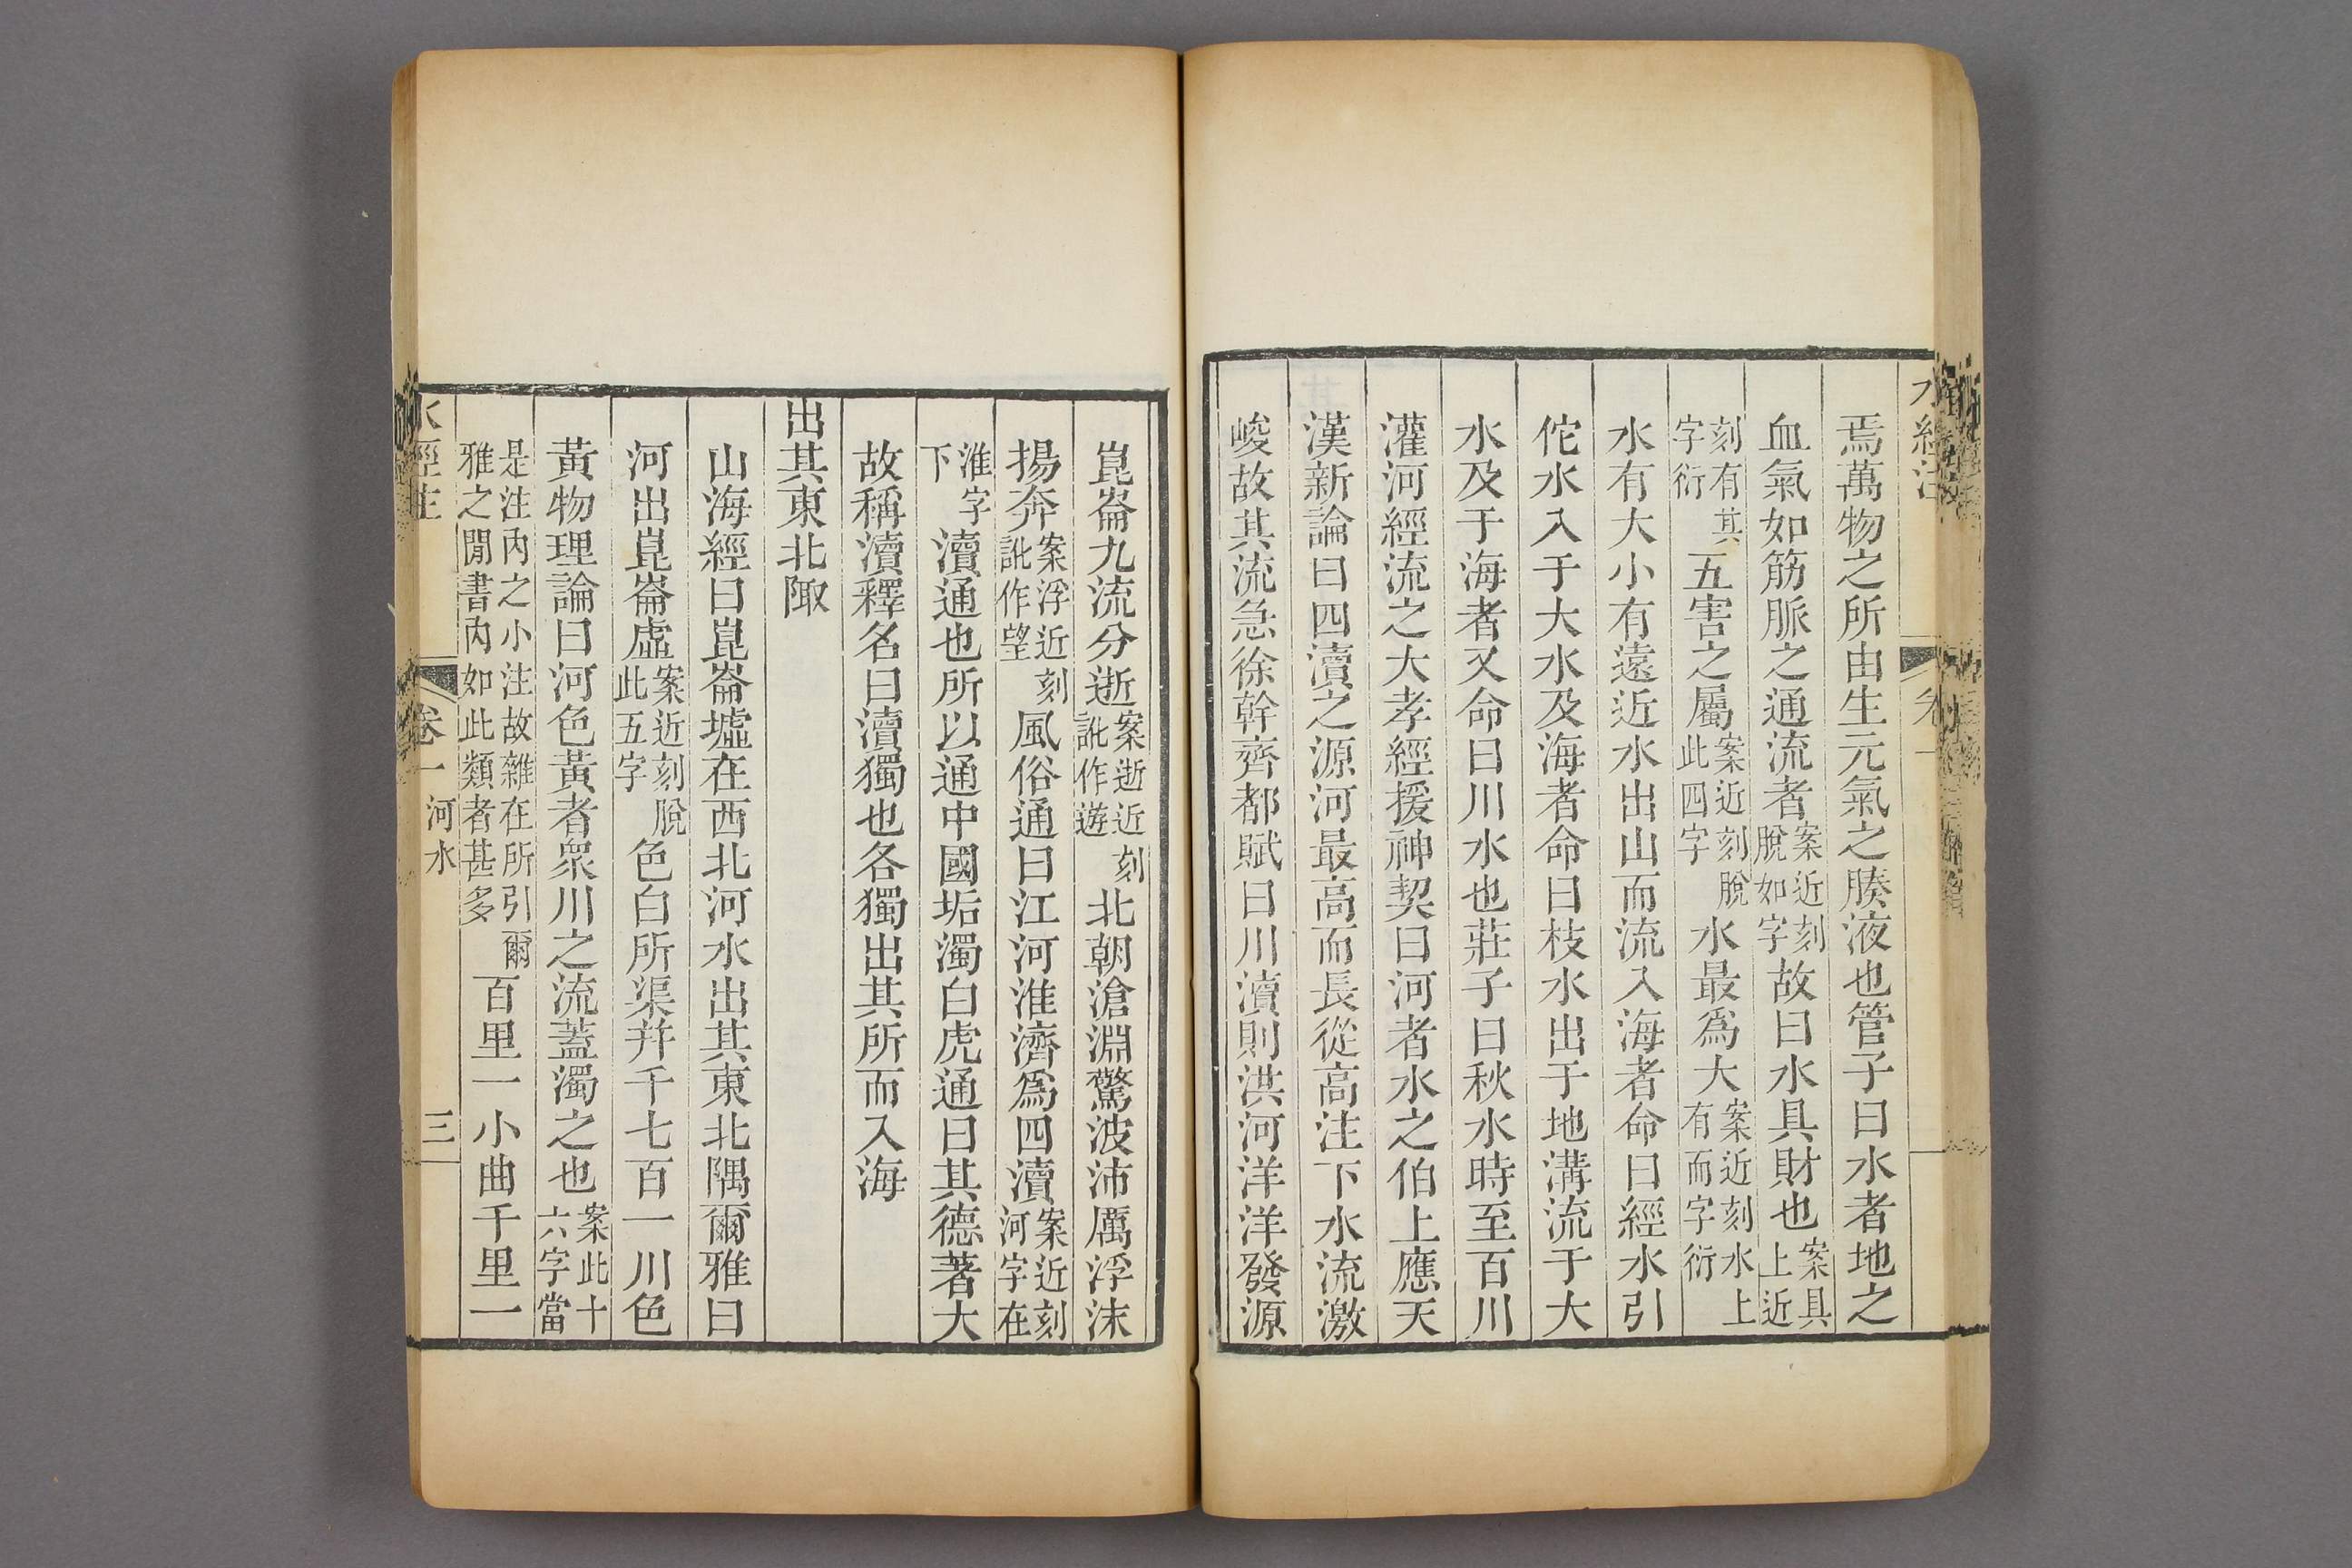 焉萬物之所由生元氣之腠液也管子曰水者地之
血氣如筋脈之通流者案近刻脫如字故曰水具財也案具上近
刻有其字衍五害之屬案近刻脫此四字水最爲大案近刻水上有而字衍
水有大小有遠近水出山而流入海者命曰經水引
佗水入于大水及海者命曰枝水出于地溝流于大
水及于海者又命曰川水也莊子曰秋水時至百川
灌河經流之大孝經援神契曰河者水之伯上應天
漢新論曰四瀆之源河最高而長從高注下水流激
峻故其流急徐幹齊都賦曰川瀆則洪河洋洋發源
崑崙九流分逝案逝近刻訛作遊北朝滄淵驚波沛厲浮沫
揚奔案浮近刻訛作望風俗通曰江河淮濟爲四瀆案近刻河字在
淮字下瀆通也所以通中國垢濁白虎通曰其德著大
故稱瀆釋名曰瀆獨也各獨出其所而入海
出其東北陬
山海經曰崑崙墟在西北河水出其東北隅爾雅曰
河出崑崙虛案近刻脫此五字色白所渠并千七百一川色
黃物理論曰河色黃者衆川之流蓋濁之也案此十六字當
是注內之小注故雜在所引爾雅之閒書內如此類者甚多百里一小曲千里一
水經注
卷一 河水
三